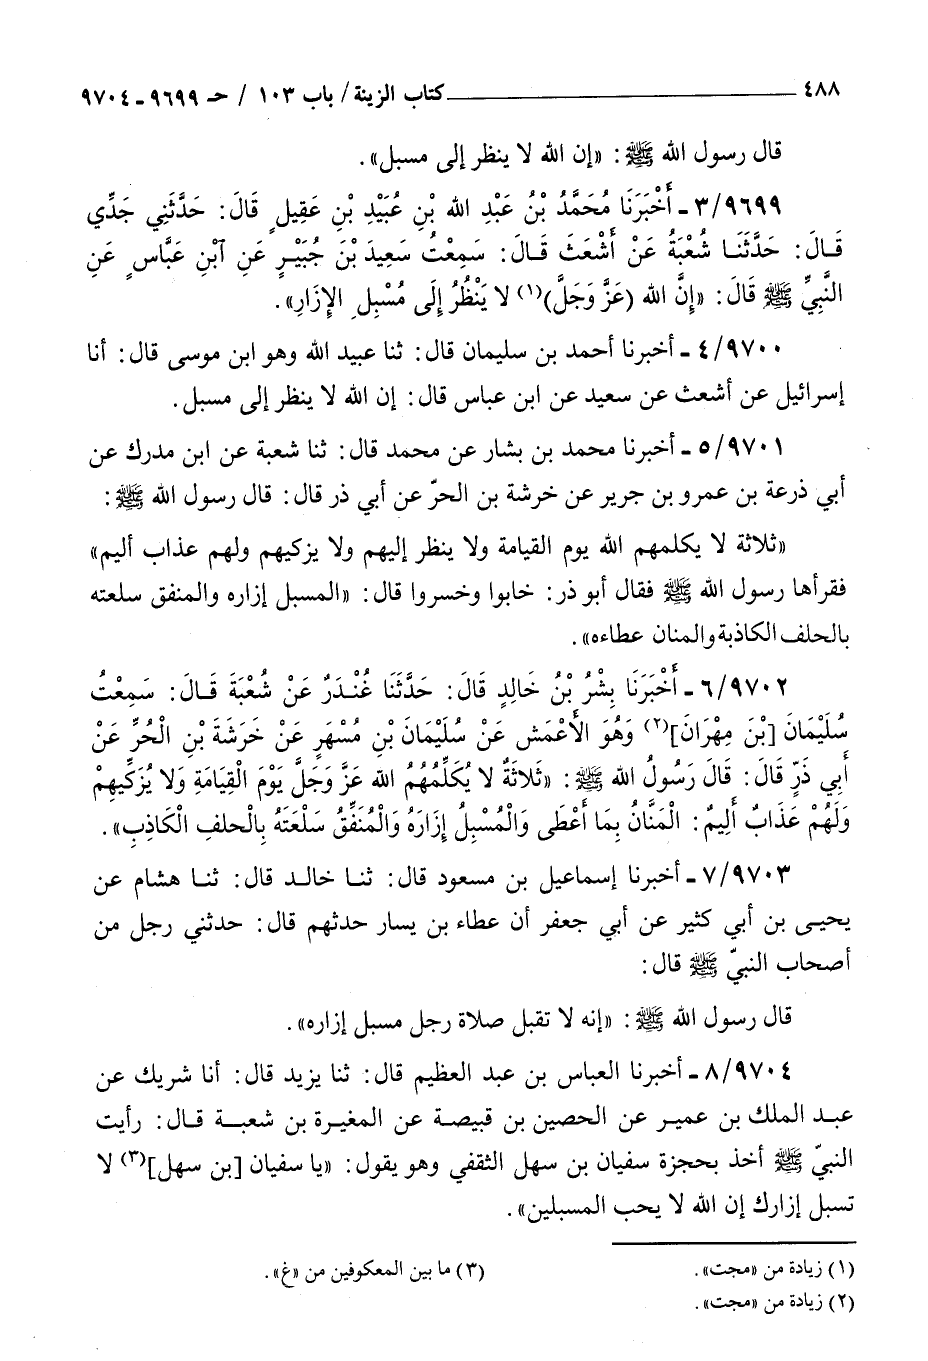 ٤٨٨ ـــــ كتاب الزينة/ باب ١٠٣ / حـ ٩٦٩٩ ـ ٩٧٠٤
قال رسول الله ﷺ: «إن الله لا ينظر إلى مسبل».
٣/٩٦٩٩ ـ أَخْبَرَنَا مُحَمَّدُ بْنُ عَبْدِ الله بْنِ عُبَيْدِ بْنِ عَقِيلٍ قَالَ: حَدَّثَنِي جَدِّي
قَالَ: حَدَّثَنَا شُعْبَةُ عَنْ أَشْعَثَ قَالَ: سَمِعْتُ سَعِيدَ بْنَ جُبَيْرٍ عَنِ ٱبْنِ عَبَّاسٍ عَنِ
النَّبِيِّ ﷺ قَالَ: «إِنَّ الله (عَزَّ وَجَلَّ)(١) لا يَنْظُرُ إِلَى مُسْبِلِ الإِزَارِ».
٤/٩٧٠٠ ـ أخبرنا أحمد بن سليمان قال: ثنا عبيد الله وهو ابن موسى قال: أنا
إسرائيل عن أشعث عن سعيد عن ابن عباس قال: إن الله لا ينظر إلى مسبل.
٥/٩٧٠١ ـ أخبرنا محمد بن بشار عن محمد قال: ثنا شعبة عن ابن مدرك عن
أبي ذرعة بن عمرو بن جرير عن خرشة بن الحرّ عن أبي ذر قال: قال رسول الله ﷺ:
«ثلاثة لا يكلمهم الله يوم القيامة ولا ينظر إليهم ولا يزكيهم ولهم عذاب أليم»
فقرأها رسول الله ﷺ فقال أبو ذر: خابوا وخسروا قال: «المسبل إزاره والمنفق سلعته
بالحلف الكاذبة والمنان عطاءه».
٦/٩٧٠٢ ـ أَخْبَرَنَا بِشْرُ بْنُ خَالِدٍ قَالَ: حَدَّثَنَا غُنْدَرٌ عَنْ شُعْبَةَ قَالَ: سَمِعْتُ
سُلَيْمَانَ [بْنَ مِهْرَانَ](٢) وَهُوَ الأَعْمَش عَنْ سُلَيْمَانَ بْنِ مُسْهِرٍ عَنْ خَرَشَةَ بْنِ الْحُرِّ عَنْ
أَبِي ذَرٍّ قَالَ: قَالَ رَسُولُ الله ﷺ: «ثَلاثَةٌ لا يُكَلِّمُهُمُ الله عَزَّ وَجَلَّ يَوْمَ الْقِيَامَةِ وَلا يُزَكِّيهِمْ
وَلَهُمْ عَذَابٌ أَلِيمٌ: الْمَنَّانُ بِمَا أَعْطَى وَالْمُسْبِلُ إِزَارَهُ وَالْمُنَفِّقُ سَلْعَتَهُ بِالْحلفِ الْكَاذِبِ».
٧/٩٧٠٣ ـ أخبرنا إسماعيل بن مسعود قال: ثنا خالد قال: ثنا هشام عن
يحيى بن أبي كثير عن أبي جعفر أن عطاء بن يسار حدثهم قال: حدثني رجل من
أصحاب النبيّ ﷺ قال:
قال رسول الله ﷺ: «إنه لا تقبل صلاة رجل مسبل إزاره».
٨/٩٧٠٤ ـ أخبرنا العباس بن عبد العظيم قال: ثنا يزيد قال: أنا شريك عن
عبد الملك بن عمير عن الحصين بن قبيصة عن المغيرة بن شعبة قال: رأيت
النبيّ ﷺ أخذ بحجزة سفيان بن سهل الثقفي وهو يقول: «يا سفيان [بن سهل](٣) لا
تسبل إزارك إن الله لا يحب المسبلين».
(١) زيادة من «مجت».
(٢) زيادة من «مجت».
(٣) ما بين المعكوفين من «غ».